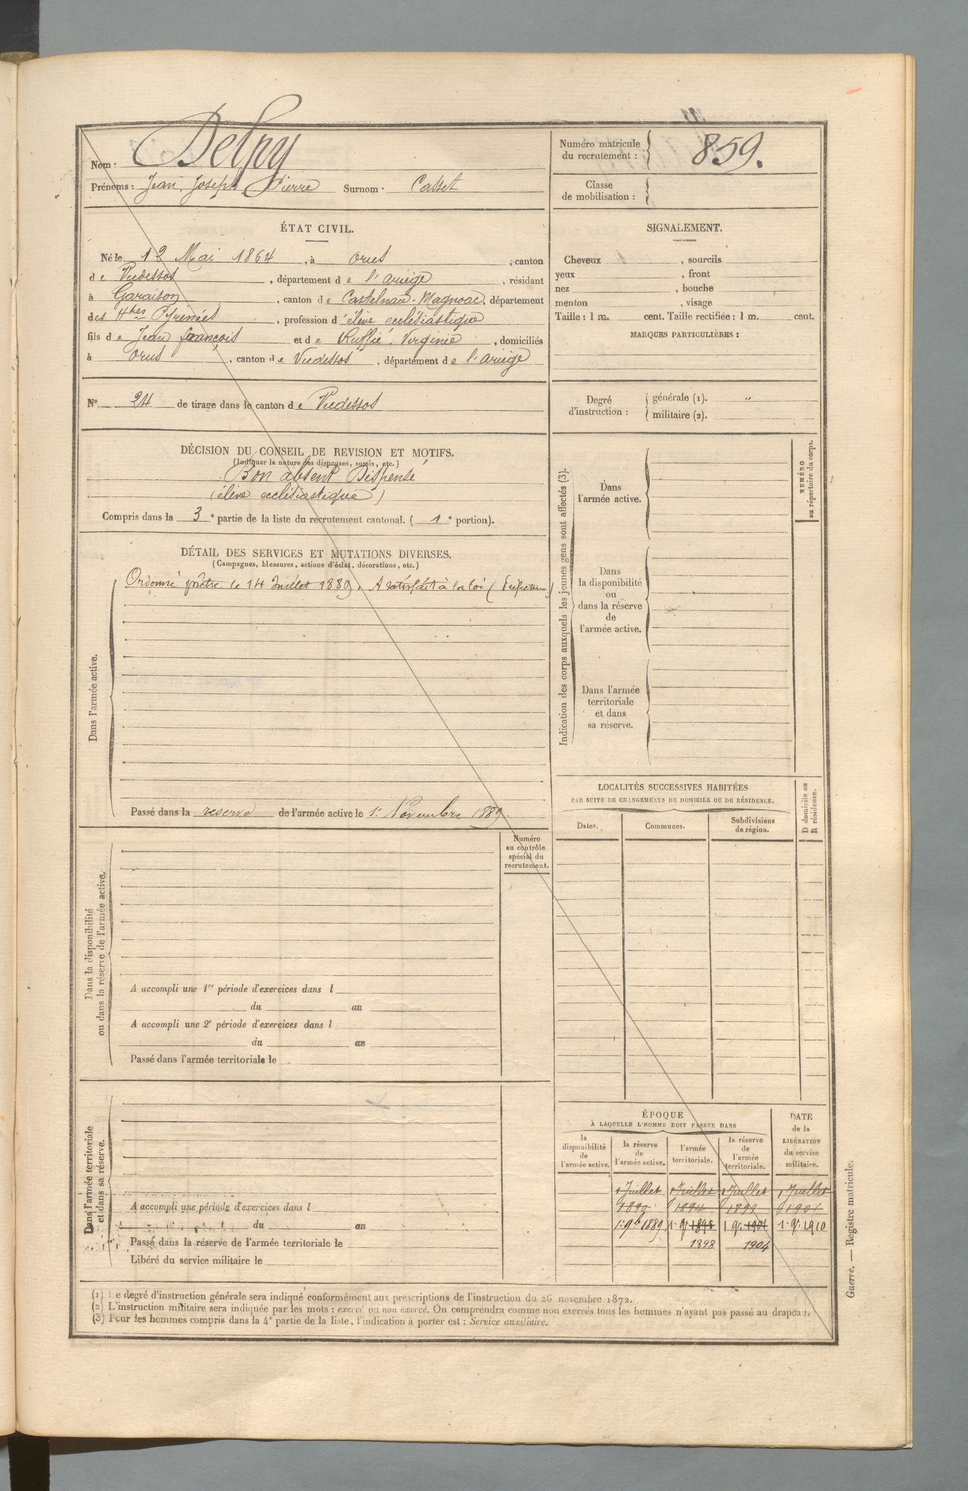 Nom : Delpy
Prénoms : Jean, Joseph Pierre Surnom : Casset
Numéro matricule
du recrutement : 859.
Classe
de mobilisation :
ÉTAT CIVIL.
Né le 12 Mai 1864, à Orus, canton
de Vicdessos, département de l'Ariège, résidant
à Garaison, canton de Castelnau-Magnoac, département
des Htes Pyrénées, profession d'élève ecclésiastique
fils de Jean françois et de Ruffié, Virginie, domiciliés
à Orus, canton de Vicdessos, département de l'ariège
N° 24 de tirage dans le canton de Vicdessos
SIGNALEMENT.
Cheveux , sourcils
yeux , front
nez , bouche
menton , visage
Taille : 1 m. cent. Taille rectifiée : 1 m. cent.
MARQUES PARTICULIÈRES :
Degré
d'instruction :
générale (1). "
militaire (2).
DÉCISION DU CONSEIL DE REVISION ET MOTIFS.
(Indiquer la nature des dispenses, sursis, etc.)
Bon absent Dispensé
(élève ecclésiastique)
Compris dans la 3e partie de la liste du recrutement cantonal. (1e portion).
DÉTAIL DES SERVICES ET MUTATIONS DIVERSES.
(Campagnes, blessures, actions d'éclat, décorations, etc.)
Dans l'armée active.
Ordonné prêtre le 14 Juillet 1889. A satisfait à la loi (
Passé dans la réserve de l'armée active le 1er Novembre 1889.
Indication des corps auxquels les jeunes gens sont affectés (3).
NUMÉRO
au répertoire du corps.
Dans
l'armée active.
Dans
la disponibilité
ou
dans la réserve
de
l'armée active.
Dans l'armée
territoriale
et dans
sa réserve.
LOCALITÉS SUCCESSIVES HABITÉES
PAR SUITE DE CHANGEMENTS DE DOMICILE OU DE RÉSIDENCE.
Dates.
Communes.
Subdivisions
de région.
D domicile ou
R résidence.
Numéro
au contrôle
spécial du
recrutement.
Dans la disponibilité
ou dans la réserve de l'armée active.
A accompli une 1re période d'exercices dans l
du au
A accompli une 2e période d'exercices dans l
du au
Passé dans l'armée territoriale le
Dans l'armée territoriale
et dans sa réserve.
A accompli une période d'exercices dans l
du au
Passé dans la réserve de l'armée territoriale le
Libéré du service militaire le
ÉPOQUE
À LAQUELLE L'HOMME DOIT PASSER DANS
la
disponibilité
de
l'armée active.
la réserve
de
l'armée active.
l'armée
territoriale.
la réserve
de
l'armée
territoriale.
DATE
de la
LIBÉRATION
du service
militaire.
1 Juillet 1 Juillet 1 Juillet 1 Juillet
1 9bre 1889 1 9bre 1 9bre 1 9bre 1910
1898 1904
(1) Le degré d'instruction générale sera indiqué conformément aux prescriptions de l'instruction du 26 novembre 1872.
(2) L'instruction militaire sera indiquée par les mots : exercé ou non exercé. On comprendra comme non exercés tous les hommes n'ayant pas passé au drapeau.
(3) Pour les hommes compris dans la 4e partie de la liste, l'indication à porter est : Service auxiliaire.
Guerre. — Registre matricule.